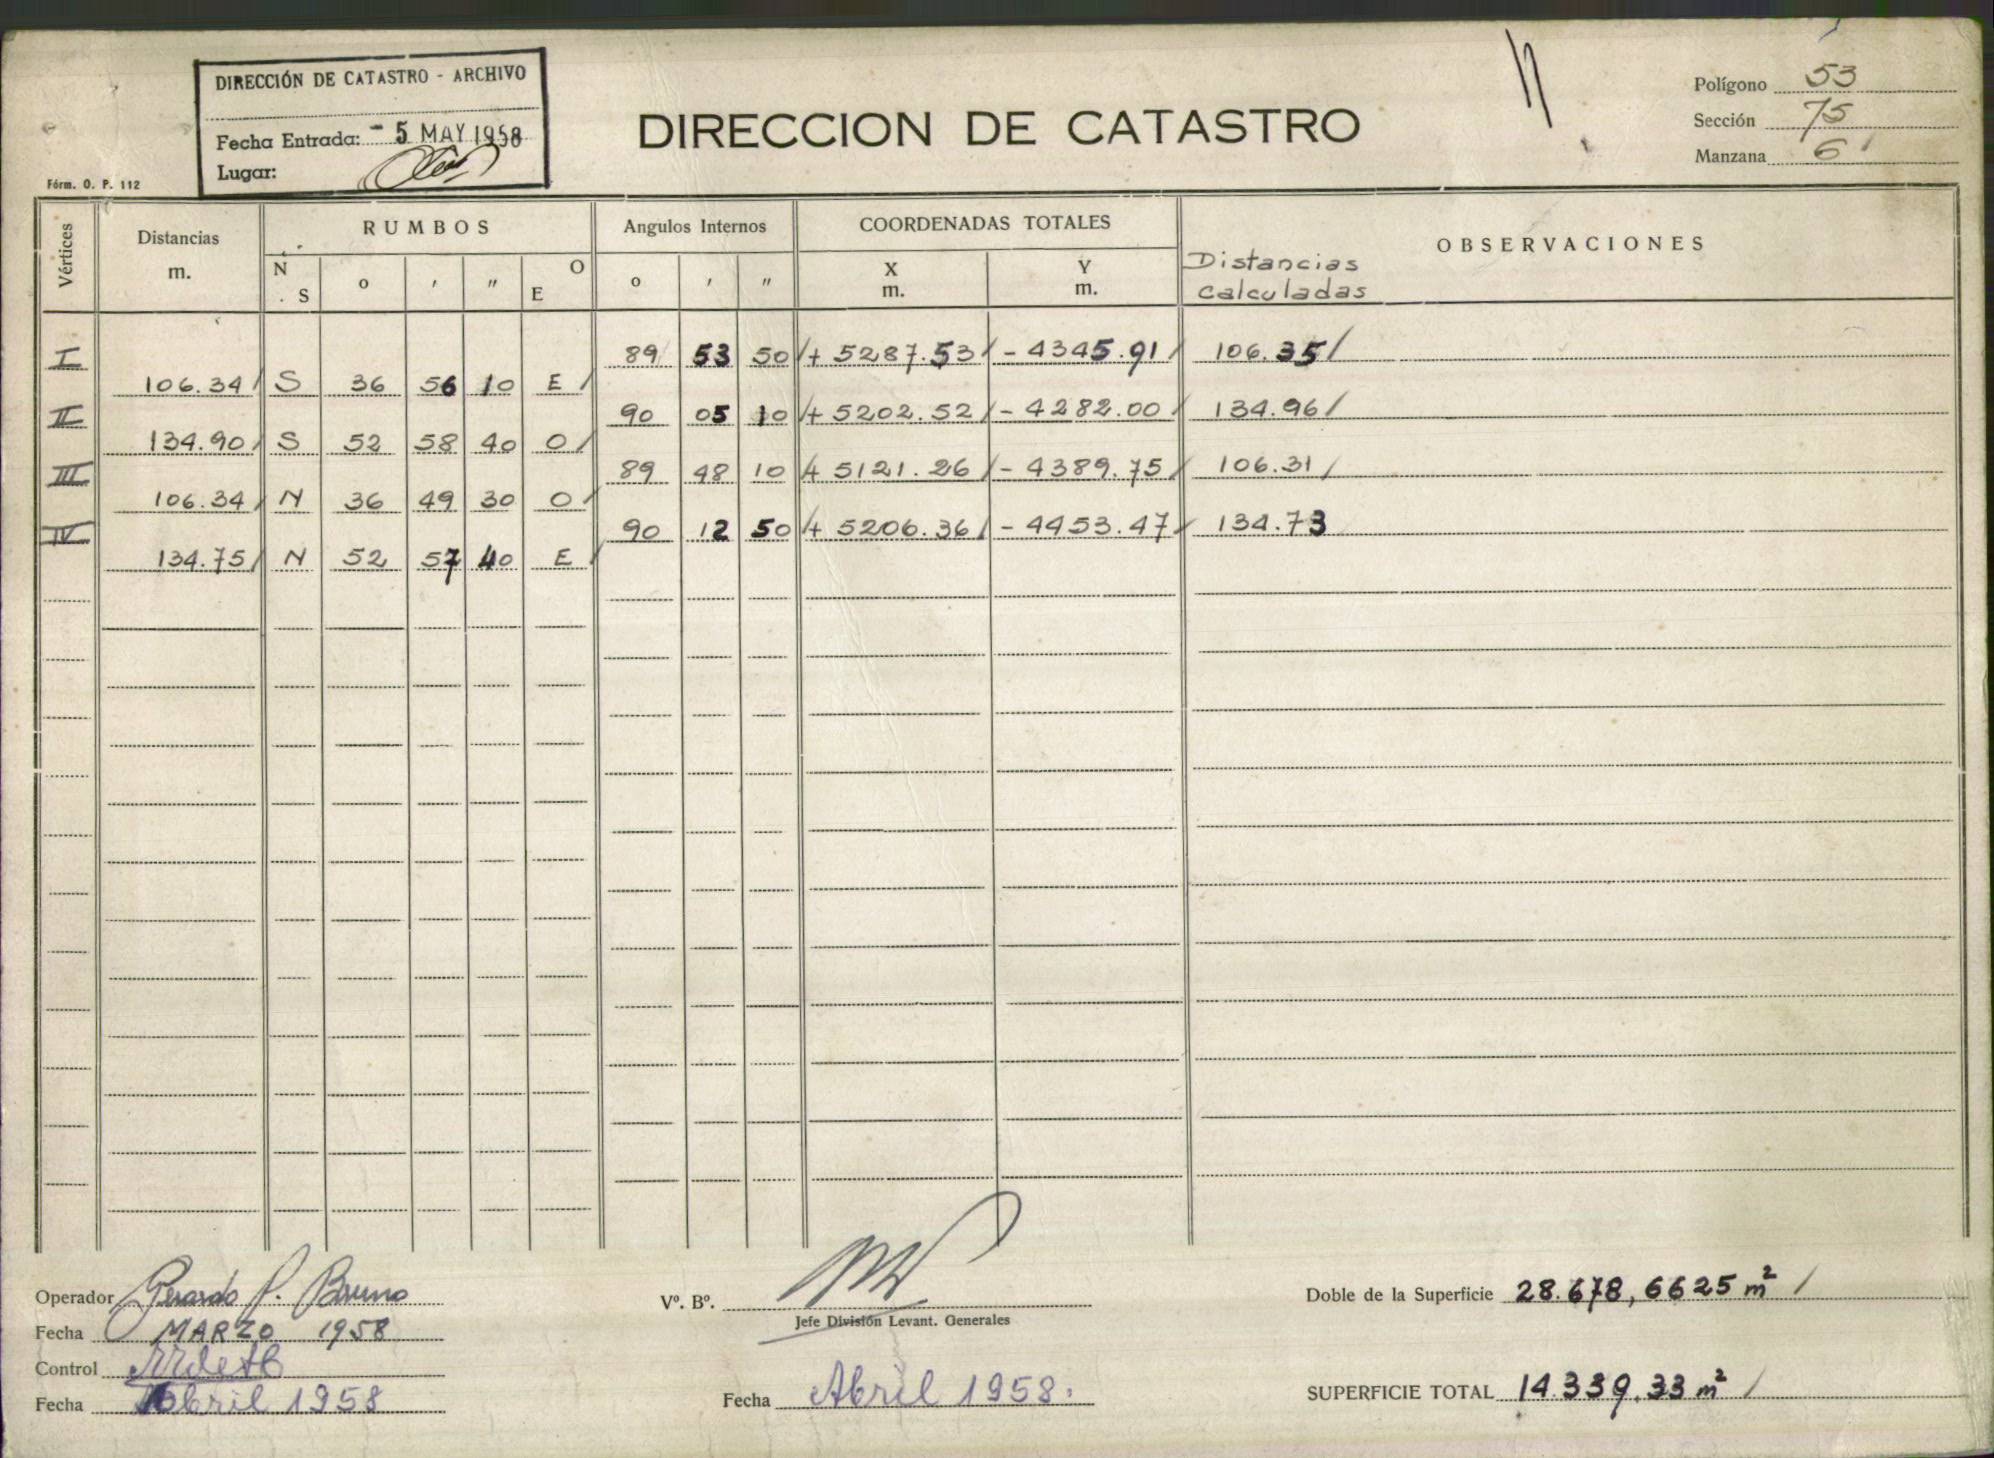 DIRECCIÓN DE CATASTRO - ARCHIVO
Fecha Entrada: - 5 MAY 1958
Lugar:
Fórm. O. P. 112
DIRECCION DE CATASTRO
Polígono 53
Sección 75
Manzana 6
Vértices
Distancias m.
RUMBOS
N S
o ′ ″
O E
Angulos Internos
o ′ ″
COORDENADAS TOTALES
X m.
Y m.
OBSERVACIONES
Distancias calculadas
I 89 53 50 + 5287.53 - 4345.91 106.35
106.34 S 36 56 10 E
II 90 05 10 + 5202.52 - 4282.00 134.96
134.90 S 52 58 40 O
III 89 48 10 + 5121.26 - 4389.75 106.31
106.34 N 36 49 30 O
IV 90 12 50 + 5206.36 - 4453.47 134.73
134.75 N 52 57 40 E
Operador Gerardo P. Bruno
Fecha MARZO 1958
Control
Fecha Abril 1958
Vº. Bº.
Jefe División Levant. Generales
Fecha Abril 1958.
Doble de la Superficie 28.678,6625 m²
SUPERFICIE TOTAL 14.339.33 m²